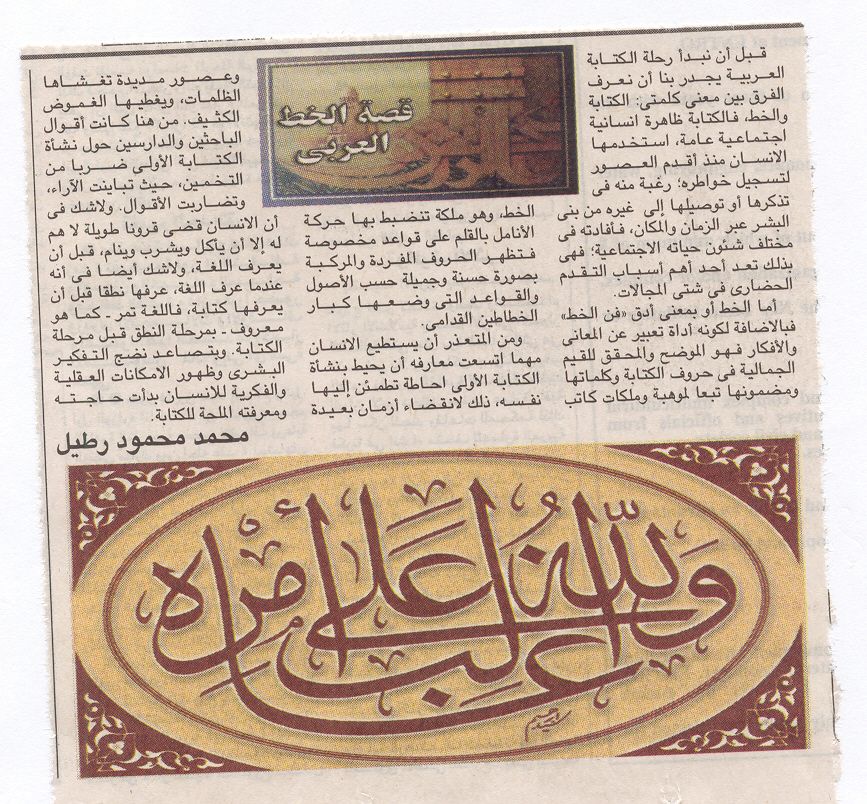 قصة الخط
العربى
قبل أن نبدأ رحلة الكتابة
العربية يجدر بنا أن نعرف
الفرق بين معنى كلمتى: الكتابة
والخط، فالكتابة ظاهرة انسانية
اجتماعية عامة، استخدمها
الانسان منذ أقدم العصور
لتسجيل خواطره؛ رغبة منه فى
تذكرها أو توصيلها إلى غيره من بنى
البشر عبر الزمان والمكان، فأفادته فى
مختلف شئون حياته الاجتماعية؛ فهى
بذلك تعد أحد أهم أسباب التقدم
الحضارى فى شتى المجالات.
أما الخط أو بمعنى أدق «فن الخط»
فبالاضافة لكونه أداة تعبير عن المعانى
والأفكار فهو الموضح والمحقق للقيم
الجمالية فى حروف الكتابة وكلماتها
ومضمونها تبعا لموهبة وملكات كاتب
الخط، وهو ملكة تنضبط بها حركة
الأنامل بالقلم على قواعد مخصوصة
فتظهر الحروف المفردة والمركبة
بصورة حسنة وجميلة حسب الأصول
والقواعد التى وضعها كبار
الخطاطين القدامى.
ومن المتعذر أن يستطيع الانسان
مهما اتسعت معارفه أن يحيط بنشأة
الكتابة الأولى احاطة تطمئن إليها
نفسه، ذلك لانقضاء أزمان بعيدة
وعصور مديدة تغشاها
الظلمات، ويغطيها الغموض
الكثيف. من هنا كانت أقوال
الباحثين والدارسين حول نشأة
الكتابة الأولى ضربا من
التخمين، حيث تباينت الآراء،
وتضاربت الأقوال. ولاشك فى
أن الانسان قضى قرونا طويلة لا هم
له إلا أن يأكل ويشرب وينام، قبل أن
يعرف اللغة، ولاشك أيضا فى أنه
عندما عرف اللغة، عرفها نطقا قبل أن
يعرفها كتابة، فاللغة تمر ـ كما هو
معروف ـ بمرحلة النطق قبل مرحلة
الكتابة. وبتصاعد نضج التفكير
البشرى وظهور الامكانات العقلية
والفكرية للانسان بدأت حاجته
ومعرفته الملحة للكتابة.
محمد محمود رطيل
والله غالب على أمره